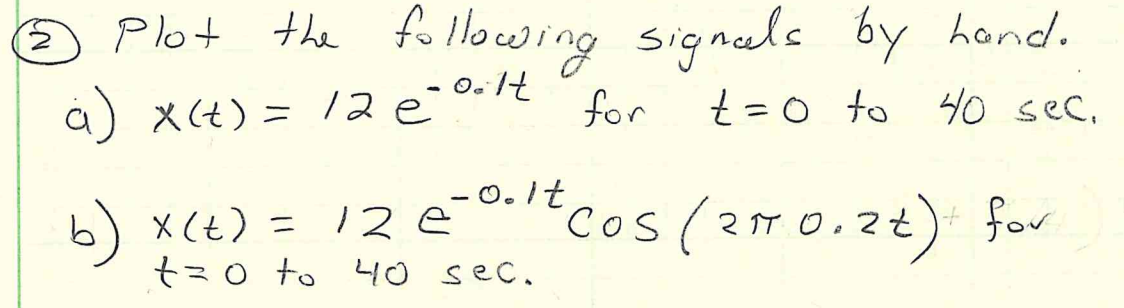 ② Plot the following signals by hand.
a) x(t) = 12 e^-0.1t for t = 0 to 40 sec.
b) x(t) = 12 e^-0.1t cos (2π 0.2t) for
t = 0 to 40 sec.